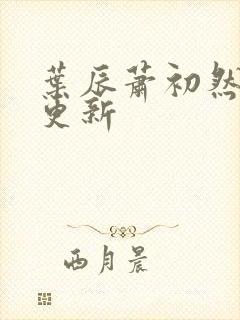 葉辰蕭初然
更新
西月晨